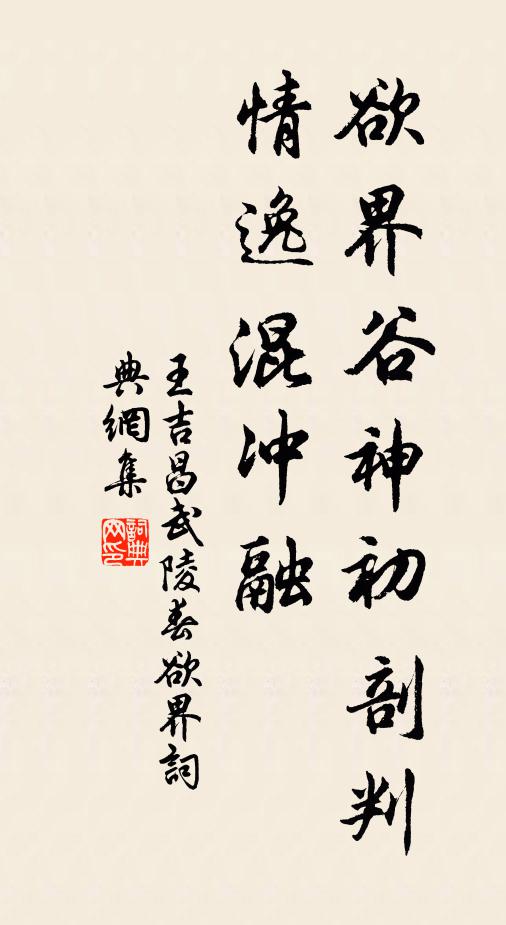 欲界谷神初剖判
情逸混冲融
王吉昌武陵春欲界詞
典網集
詞典網印